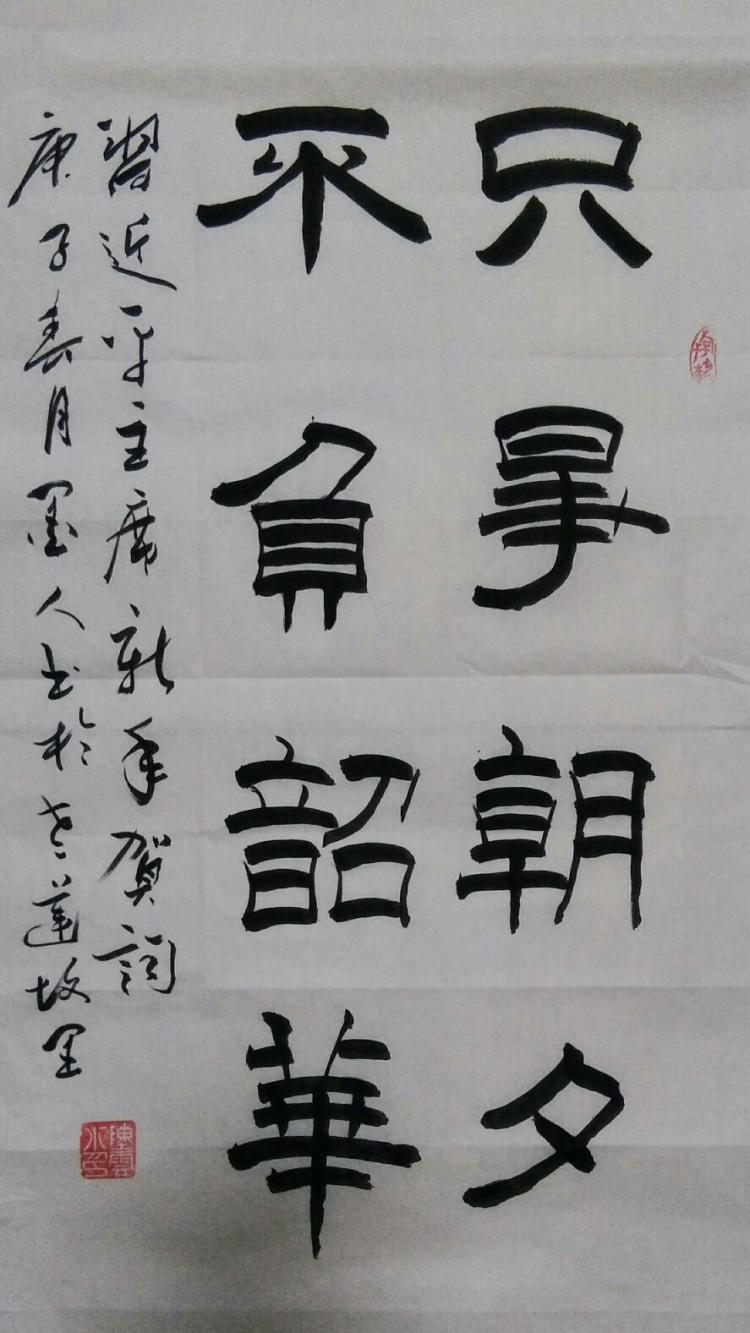 只爭朝夕
不負韶華
習近平主席新年賀詞
庚子春月墨人书於老蓮故里
陳雲水印